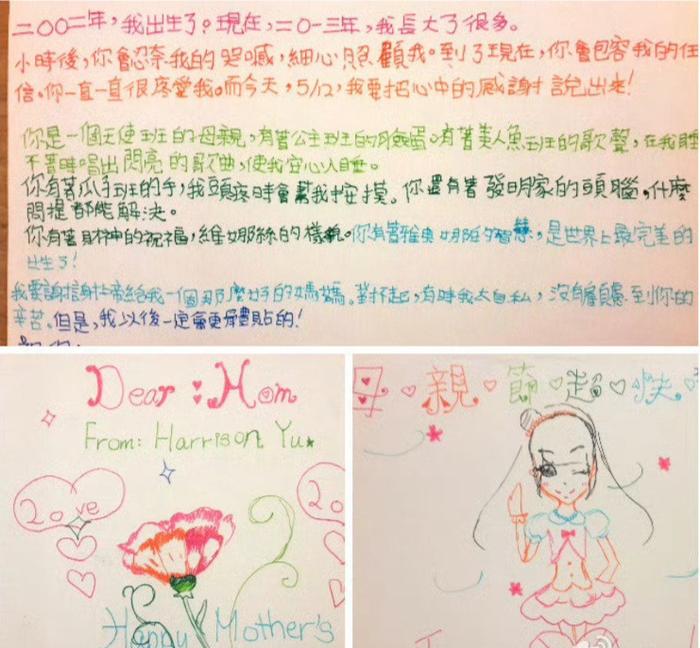 二〇〇二年，我出生了。現在，二〇一三年，我長大了很多。
小時後，你會忍奈我的哭喊，細心照顧我。到了現在，你會包容我的任
信。你一直一直很疼愛我。而今天，5/12，我要把心中的感謝說出來！
你是一個天使班的母親，有著公主班的臉蛋。有著美人魚班的歌聲，在我睡
不著時唱出閃亮的歌曲，使我安心入睡。
你有苦瓜子班的手，我頭疼時會幫我按摸。你還有著發明家的頭腦，什麼
問提都能解決。
你有著財神的祝福，維娜絲的樣貌。你有著雅典娜的智慧，是世界上最完美的
出生了！
我要謝謝上帝給我一個那麼好的媽媽。對不起，有時我太自私，沒有顧慮到你的
辛苦。但是，我以後一定會更體貼的！
Dear : Mom
From: Harrison Yu
Love
Happy Mother's
母親節超快